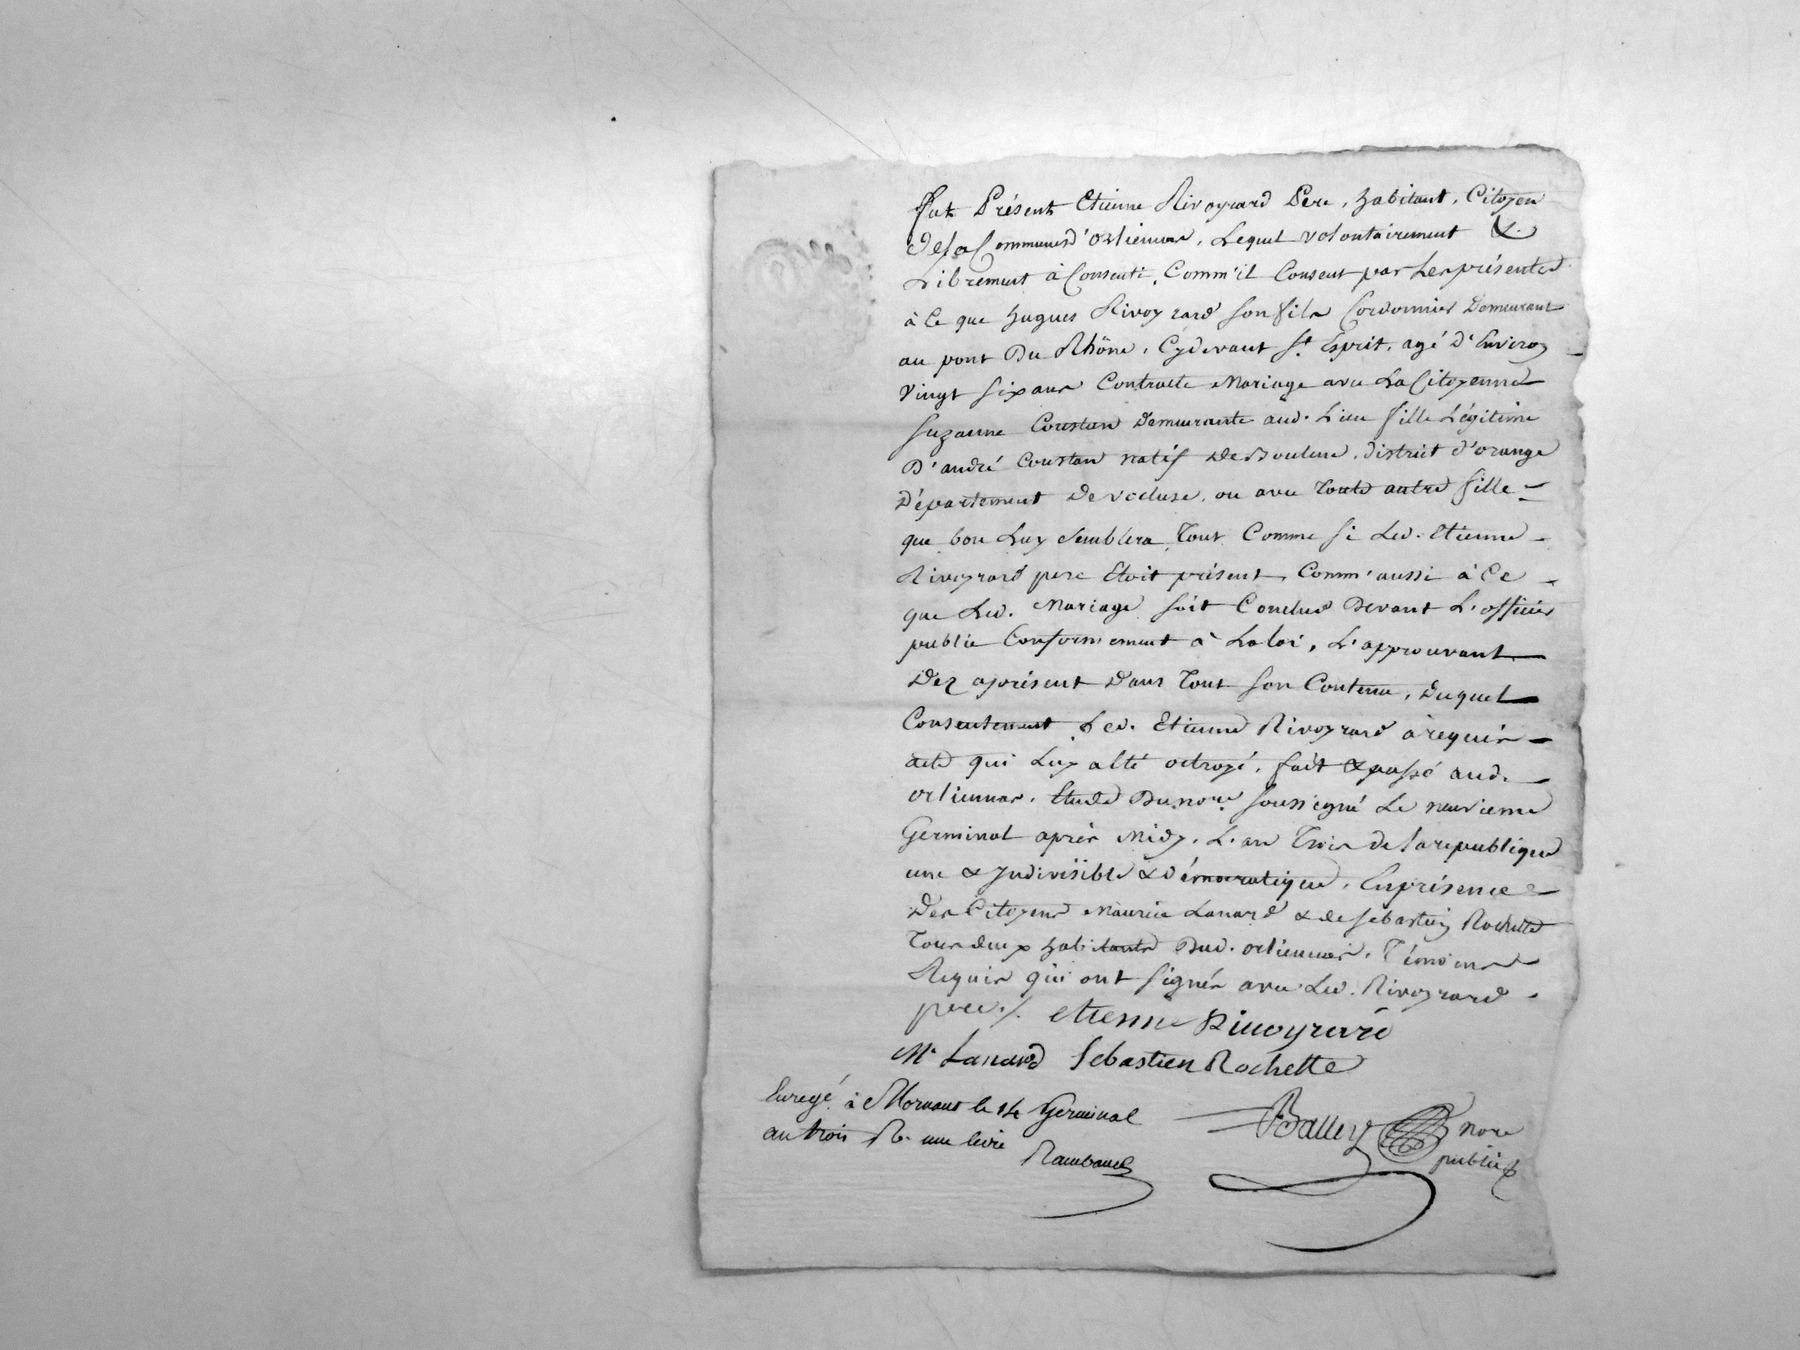 fut Présent Etienne Rivoyrard Pere, habitant, Citoyen
de la Commune d'orlienas, Lequel volontairement &
Librement à Consenti, Comm'il Consent par Les présentes
à Ce que hugues Rivoyrard son fils Cordonnier Demeurant
au pont Du Rhône, Cydevant St Esprit, agé D'Environ
Vingt six ans Contracte Mariage avec La Citoyenne
Suzanne Coustan Demeurante aud. Lieu fille Légitime
D'andré Coustan natif De Boulene, district d'orange
Département De vocluse, ou avec toute autre fille
que bon Luy semblera, tout Comme si Led. Etienne
Rivoyrard pere Etoit présent, Comm'aussi à Ce
que Led. Mariage soit Conclud Devant L'officier
public Conformement à La loi, L'approuvant
Dez aprésent Dans tout son Contenu, Duquel
Consentement Led. Etienne Rivoyrard à requis
acte qui Luy a Eté octroyé, fait & passé aud.
orlienas, Etude Du nore soussigné Le neuvieme
Germinal après Midy, L'an trois de la republique
une & Indivisible & Démocratique, En présence
Des Citoyens Maurice Lanard & de sebastien Rochette
tous deux habitants Dud. orlienas, Témoins
Requis qui ont signés avec Led. Rivoyrard
pere ./. etienne Rivoyrard
Mce Lanard Sebastien Rochette
Enregé à Mornant le 14 Germinal
an trois R. une livre
Balley nore
public